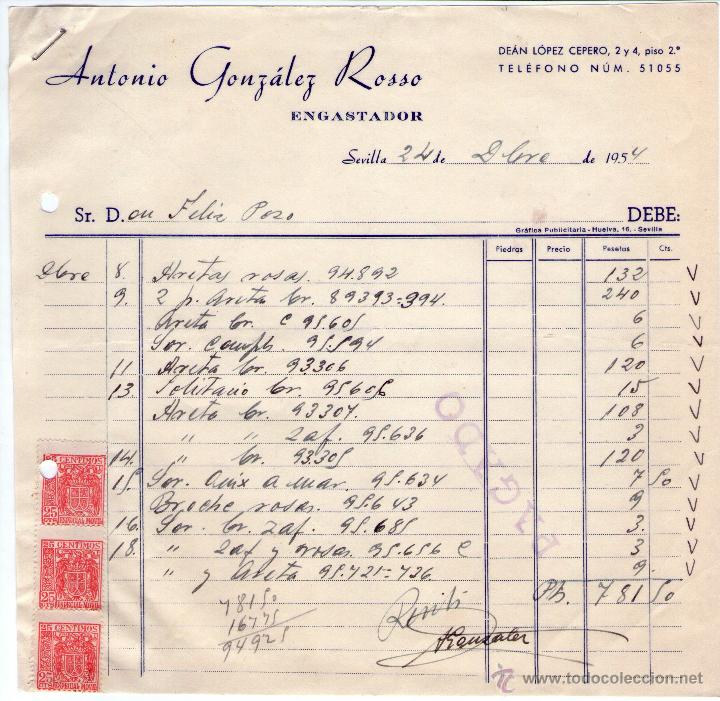 DEÁN LÓPEZ CEPERO, 2 y 4, piso 2.º
TELÉFONO NÚM. 51055
Antonio González Rosso
ENGASTADOR
Sevilla 24 de Dbre de 1954
Sr. D. on Felix Pozo DEBE:
Gráfica Publicitaria - Huelva, 16. - Sevilla
Piedras Precio Pesetas Cts.
Dbre 8. Aretas rosas. 94.892 132
9. 2 p. Areta br. 89393=394. 240
Areta br. c 95.605 6
Sor. 95.594 6
11 Areta br. 93.306 120
13. Solitario br. 95606 15
Areta br. 93307. 108
" " 2 af. 95.636 3
14. " br. 93305 120
15. Sor. 95.634 7 50
Broche rosas. 95.643 9
16. Sor. br. zaf. 95.685 3.
18. " zaf y rosas 95.656 c 3
" y Areta 95.721=726. 9.
781 50
781 50
167 75
949 25
PAGADO
25 CENTIMOS
25 CTS
ESPECIAL MOVIL
25 CENTIMOS
25 CTS
ESPECIAL MOVIL
25 CENTIMOS
25 CTS
ESPECIAL MOVIL
Recibí
González
© todocoleccion.net